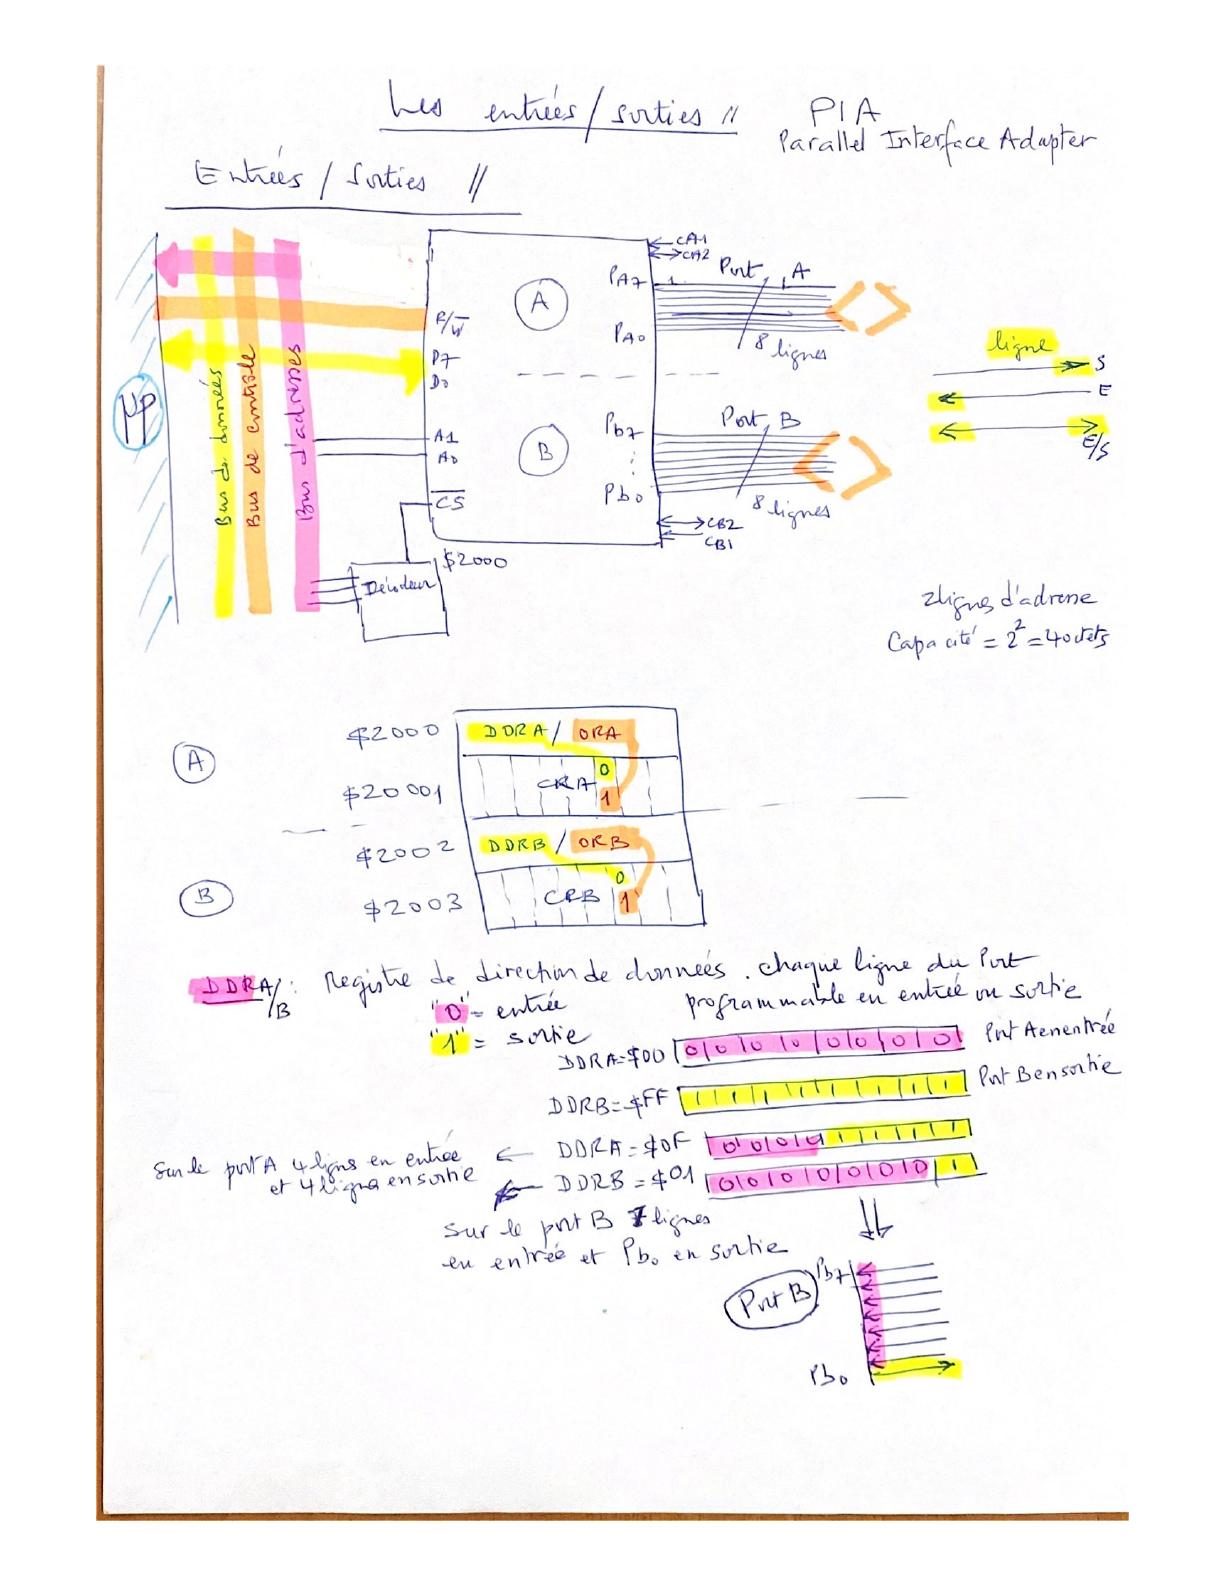 Les entrées/sorties //
PIA
Parallel Interface Adapter
Entrées / Sorties //
µp
Bus de données
Bus de contrôle
Bus d'adresses
R/W
D7
D0
A1
A0
CS
$2000
Décodeur
A
B
PA7
PA0
Pb7
Pb0
CA1
CA2
Port A
8 lignes
Port B
8 lignes
CB2
CB1
ligne
S
E
E/S
2 lignes d'adresse
Capacité = 2² = 4 octets
A
$2000 DDRA / ORA
0
$20001 CRA
1
$2002 DDRB / ORB
0
B
$2003 CRB 1
DDRA/B : Registre de direction de données. chaque ligne du Port
programmable en entrée ou sortie
"0" = entrée
"1" = sortie
DDRA=$00 0 0 0 0 0 0 0 0 Port A en entrée
DDRB=$FF 1 1 1 1 1 1 1 1 Port B en sortie
DDRA=$0F 0 0 0 0 1 1 1 1
Sur le port A 4 ligns en entrée
et 4 lignes en sortie
DDRB=$01 0 0 0 0 0 0 0 1
Sur le port B 7 lignes
en entrée et Pb0 en sortie
Port B
Pb7
Pb0